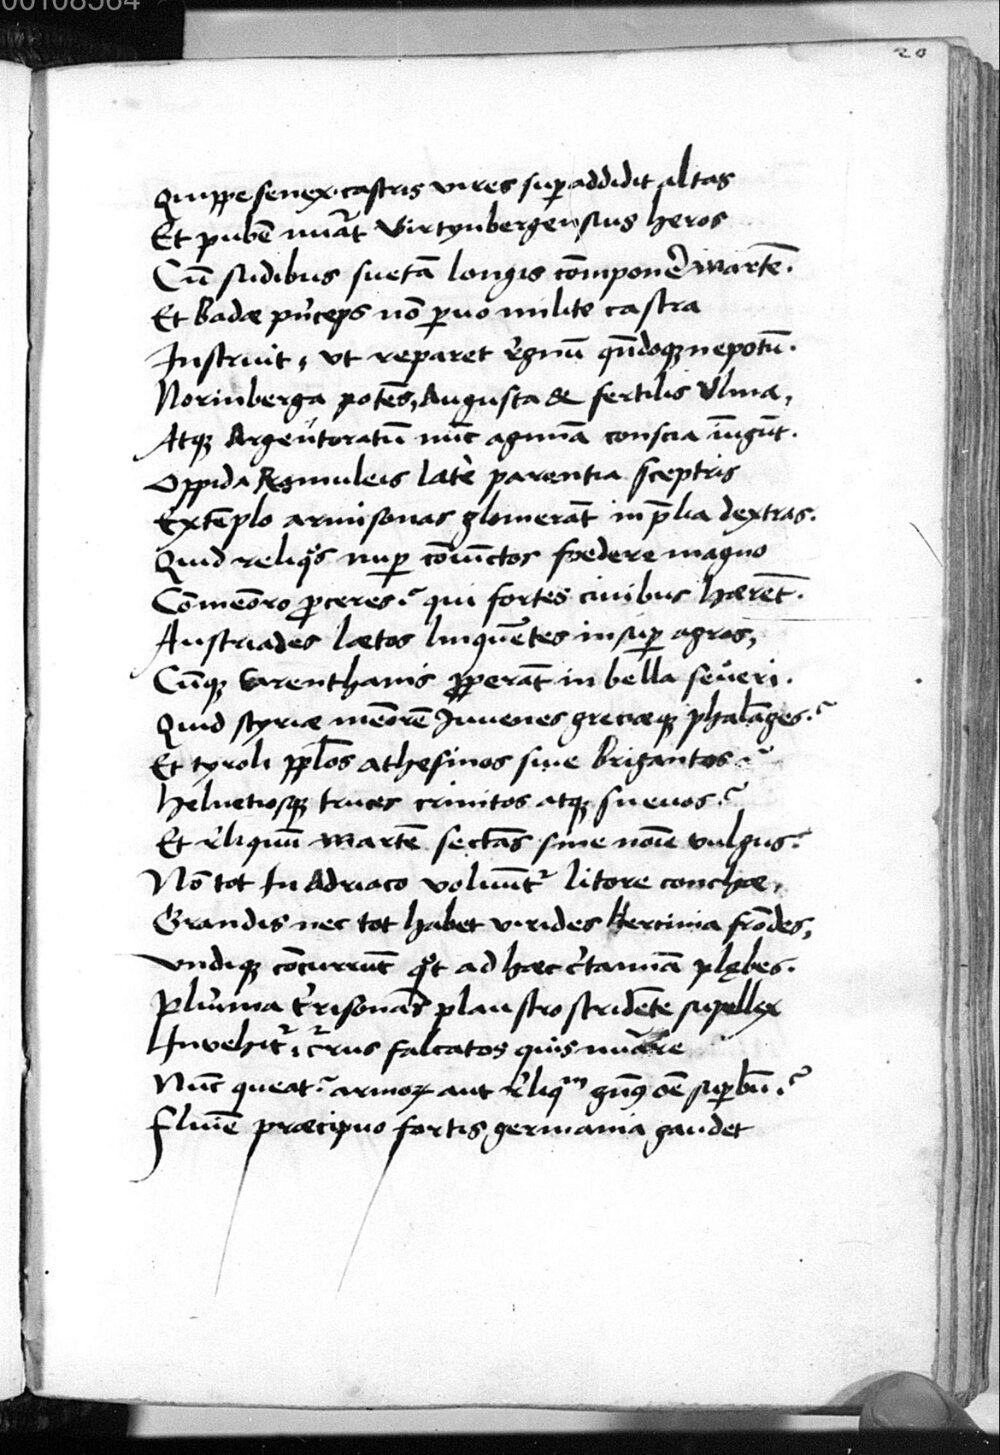 00108564
20
Quippe senex castris vires suꝑaddidit altas
Et pubē iuuāt Virtynbergensius heros
Cū sudibus suetā longis cōponẽ Martē.
Et Badæ prĩceps nō ꝑuo milite castra
Instruit, vt reparet rẽgnū qñdoqꝫ nepotū.
Norinberga potēs, Augusta & fertilis Vlma,
Atqꝫ Argentoratū nūc agmīa conscia iūgūt.
Oppida Romuleis latè parentia sceptris
Extēplo armisonas glomerāt in p̄lia dextras.
Quid reliqͦs nuꝑ cōiūctos fœdere magno
Cōmeōro ꝓceres? qui fortes ciuibus hærēt.
Austriades lætos linquētes insuꝑ agros,
Cūqꝫ Carenthanis ꝓꝑerāt in bella seueri.
Quid styriæ meōrē Iuuenes greciæqꝫ phalāges?
Et tyroli pp̄los athesinos siue Brigantos?
Heluetiosqꝫ truces crinitos atqꝫ sueuos?
Et rẽliquū Martē sectās sine noīe vulgus?
Nō tot In Adriaco voluūtᷣ litore conchæ,
Grandis nec tot habet virides Hercinia frōdes,
Vndiqꝫ cōcurrūt qͦt ad hæc cẽtamīa plębes.
Plurīma tẽrrisonās plaustro stridēte supellex
Inuehitᷣ, cũrrus falcatos quis nũāre
Nūc queat? armoꝝ aut rẽliqᷤ gñꝰ oē suꝑbū?
Fluīe præcipuo fortis germania gaudet